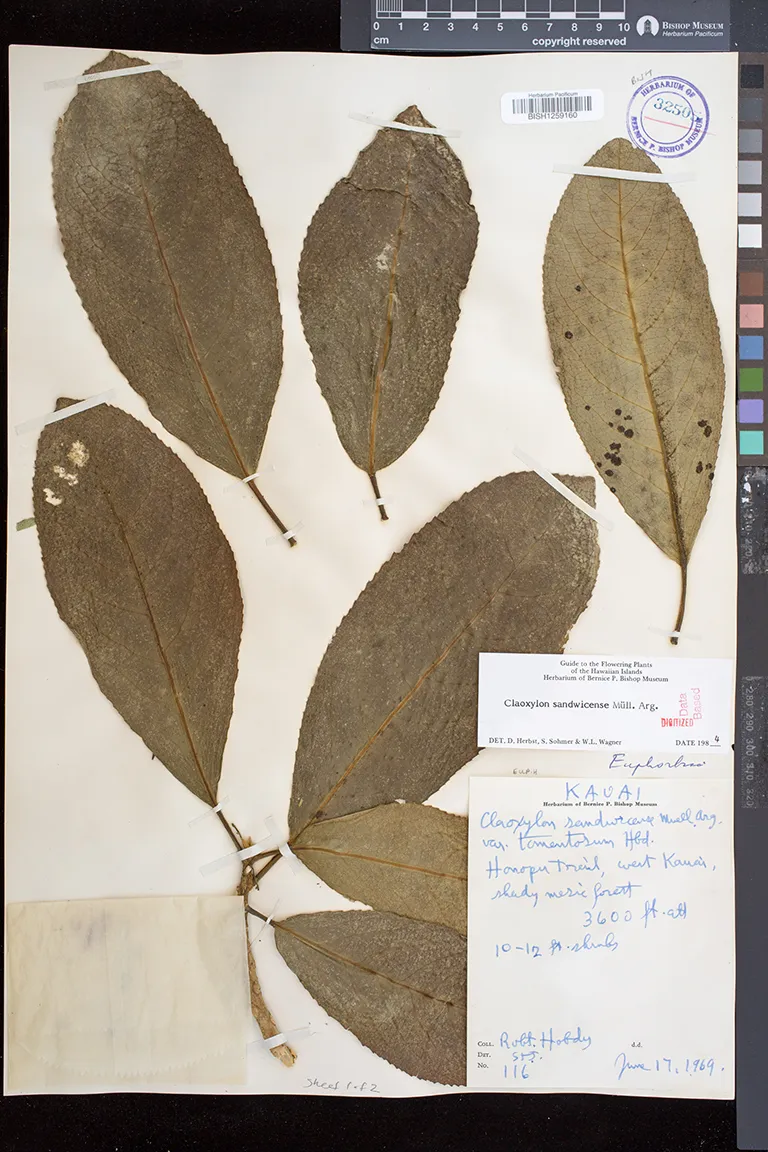 0 1 2 3 4 5 6 7 8 9 10
cm
copyright reserved
BISHOP MUSEUM
Herbarium Pacificum
Herbarium Pacificum
BISH1259160
HERBARIUM OF
BERNICE P. BISHOP MUSEUM
Guide to the Flowering Plants
of the Hawaiian Islands
Herbarium of Bernice P. Bishop Museum
Claoxylon sandwicense Müll. Arg.
DIGITIZED
Data Based
DET. D. Herbst, S. Sohmer & W.L. Wagner DATE 1984
EUPH
KAUAI
Herbarium of Bernice P. Bishop Museum
Claoxylon sandwicense Muell. Arg.
var. tomentosum Hbd.
Honopu Trail, west Kauai,
shady mesic forest
3600 ft. alt
10-12 ft. shrubs
COLL. Robt. Hobdy d.d.
DET. StJ.
No. 116 June 17, 1969.
Sheet 1 of 2